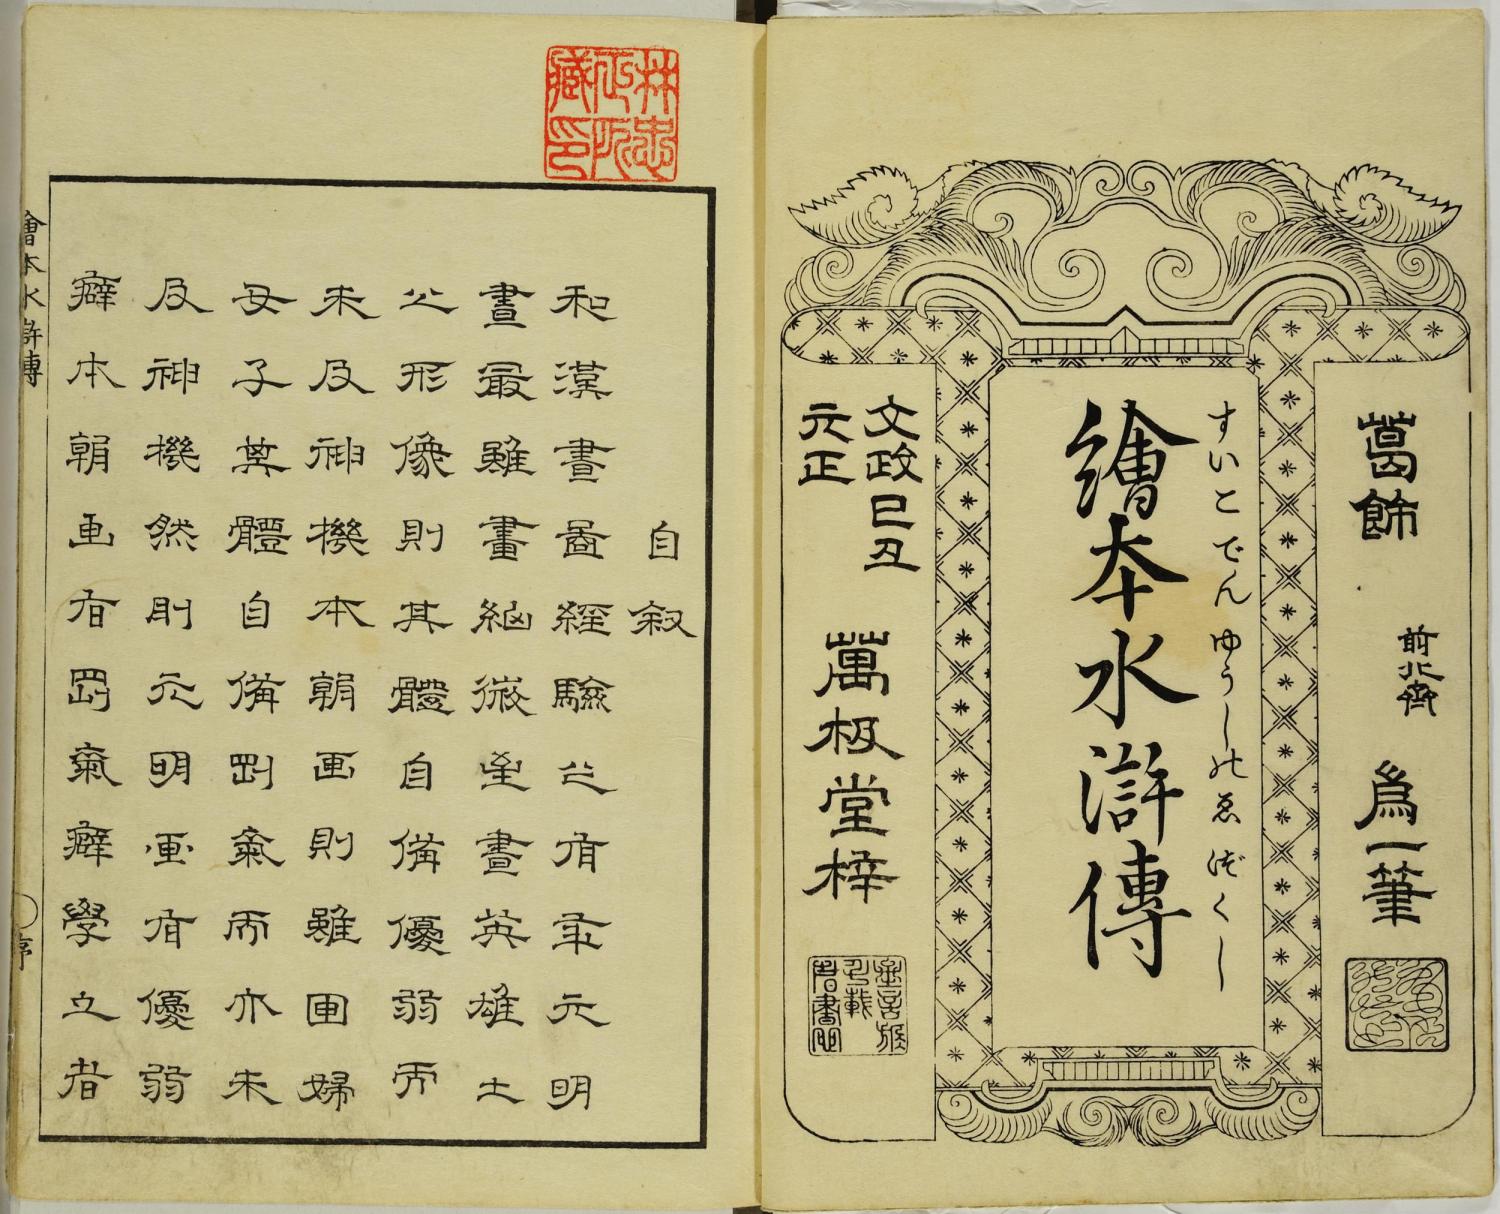 葛飾 前北斎 為一筆
すいこでんゆうしのゑづくし
繪本水滸傳
文政己丑
元正
萬极堂梓
林忠正 藏印
自叙
和漢畫圖經驗之有年元明
畫最雖畫細微至畫英雄士
之形像則其體自備優弱而
未及神機本朝画則雖画婦
女子其體自備剛氣而亦未
及神機然則元明画有優弱
癖本朝画有剛氣癖學之者
繪本水滸傳 〇序